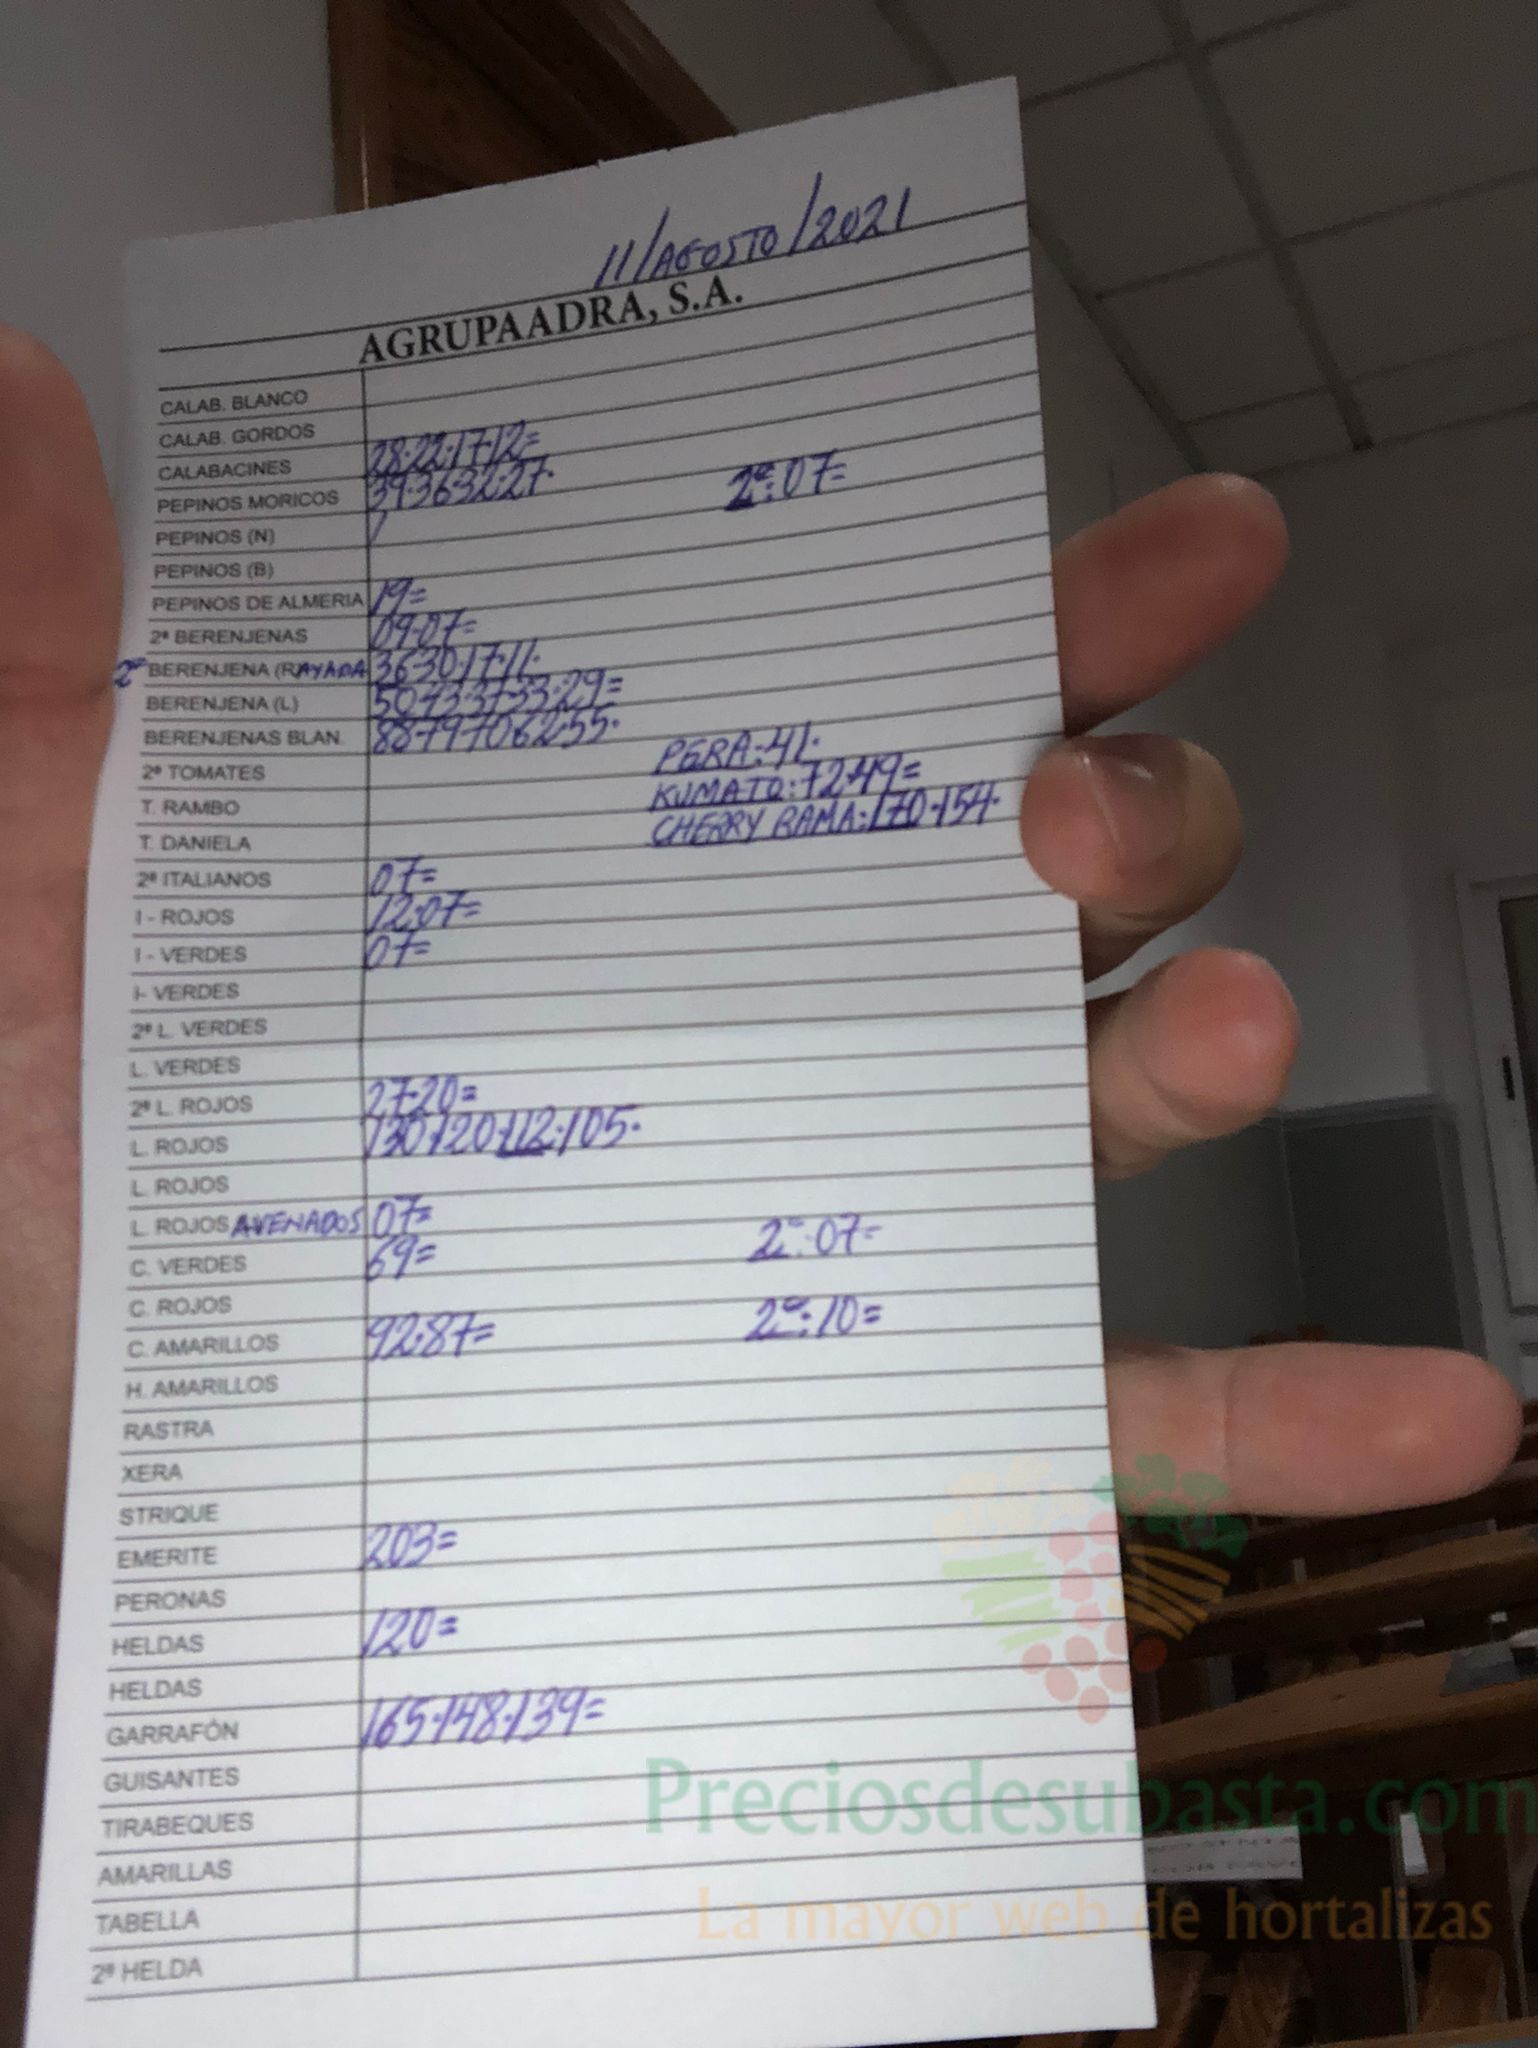 11/AGOSTO/2021
AGRUPAADRA, S.A.
CALAB. BLANCO
CALAB. GORDOS
CALABACINES 28·22·17·12=
PEPINOS MORICOS 39·36·32·27· 2ª:07=
PEPINOS (N)
PEPINOS (B)
PEPINOS DE ALMERIA 19=
2ª BERENJENAS 09·07=
2ª BERENJENA (RAYADA 36·30·17·11·
BERENJENA (L) 50·43·37·33·29=
BERENJENAS BLAN. 88·79·70·62·55·
2ª TOMATES PERA:41·
T. RAMBO KUMATO:72·49=
T. DANIELA CHERRY RAMA:170·154·
2ª ITALIANOS 07=
I - ROJOS 12·07=
I - VERDES 07=
I- VERDES
2ª L. VERDES
L. VERDES
2ª L. ROJOS 27·20=
L. ROJOS 130·120·112·105·
L. ROJOS
L. ROJOS AVENADOS 07=
C. VERDES 69= 2ª:07=
C. ROJOS
C. AMARILLOS 92·87= 2ª:10=
H. AMARILLOS
RASTRA
XERA
STRIQUE
EMERITE 203=
PERONAS
HELDAS 120=
HELDAS
GARRAFÓN 165·148·139=
GUISANTES
TIRABEQUES
AMARILLAS
TABELLA
2ª HELDA
Preciosdesubasta.com
La mayor web de hortalizas